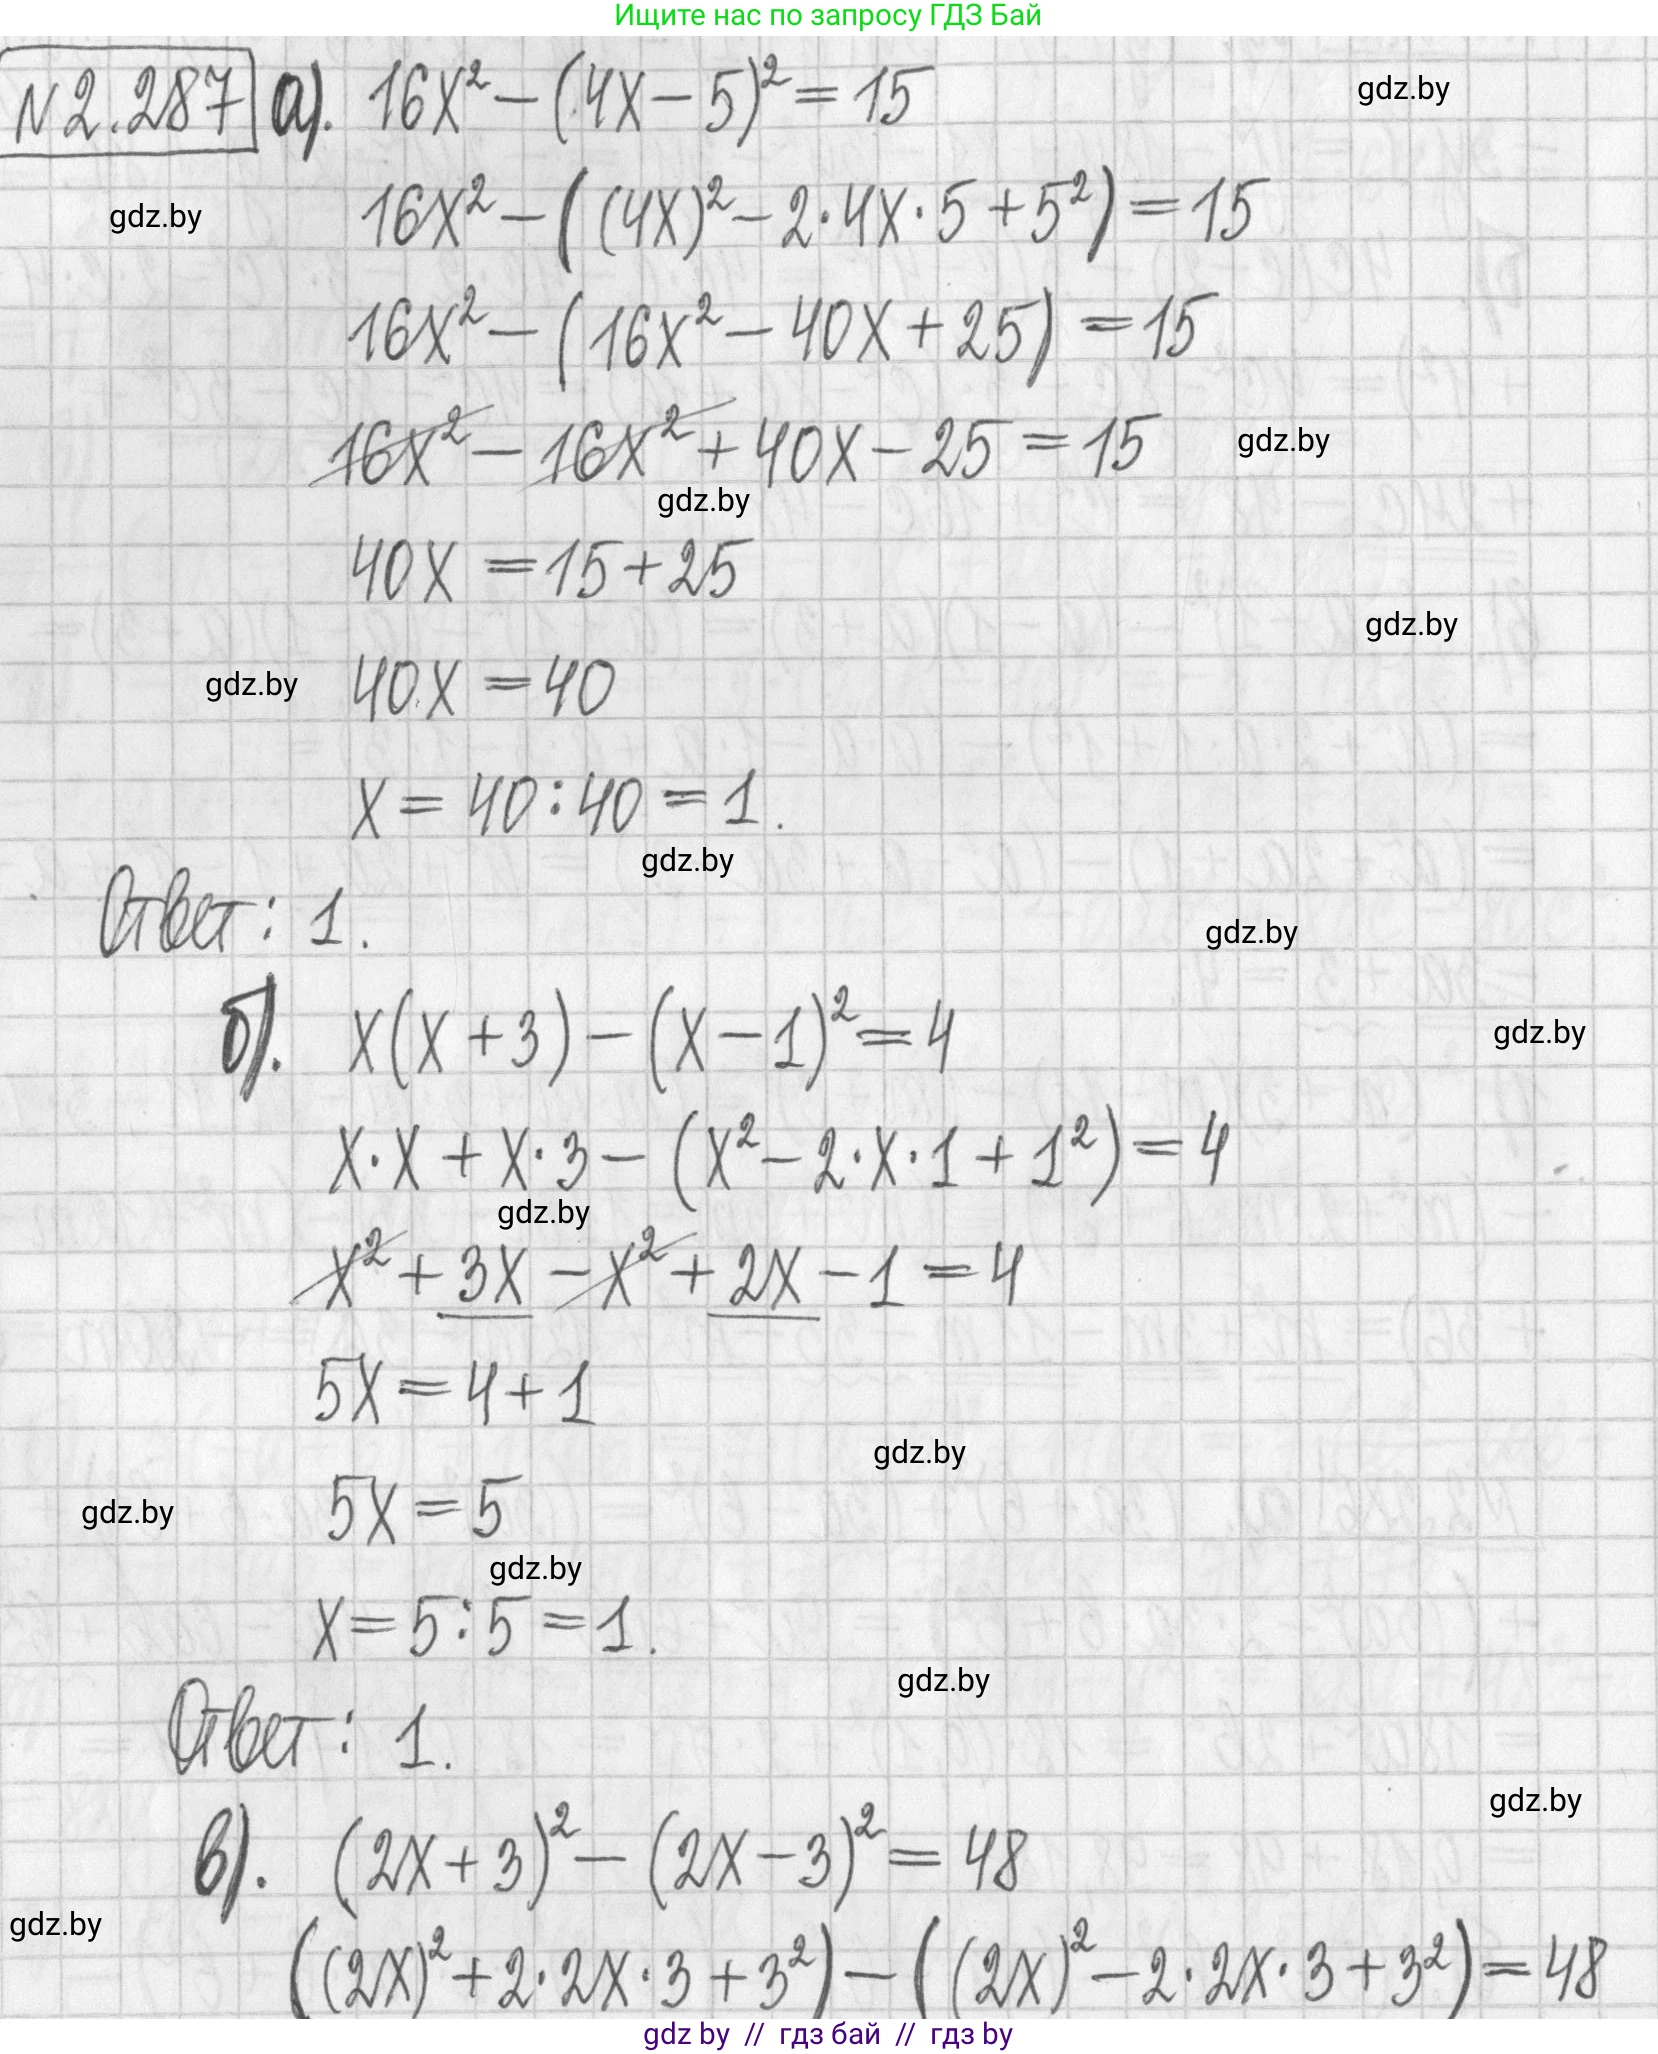 Ищите нас по запросу ГДЗ Бай
№2.287 а). 16x² − (4x − 5)² = 15
gdz.by
gdz.by
16x² − ((4x)² − 2·4x·5 + 5²) = 15
16x² − (16x² − 40x + 25) = 15
16x² − 16x² + 40x − 25 = 15
gdz.by
gdz.by
40x = 15 + 25
gdz.by
gdz.by
40x = 40
x = 40 : 40 = 1.
gdz.by
Ответ: 1.
gdz.by
б). x(x + 3) − (x − 1)² = 4
gdz.by
x·x + x·3 − (x² − 2·x·1 + 1²) = 4
gdz.by
x² + 3x − x² + 2x − 1 = 4
5x = 4 + 1
gdz.by
5x = 5
gdz.by
gdz.by
x = 5 : 5 = 1.
gdz.by
Ответ: 1.
gdz.by
в). (2x + 3)² − (2x − 3)² = 48
gdz.by
((2x)² + 2·2x·3 + 3²) − ((2x)² − 2·2x·3 + 3²) = 48
gdz by // гдз бай // гдз by